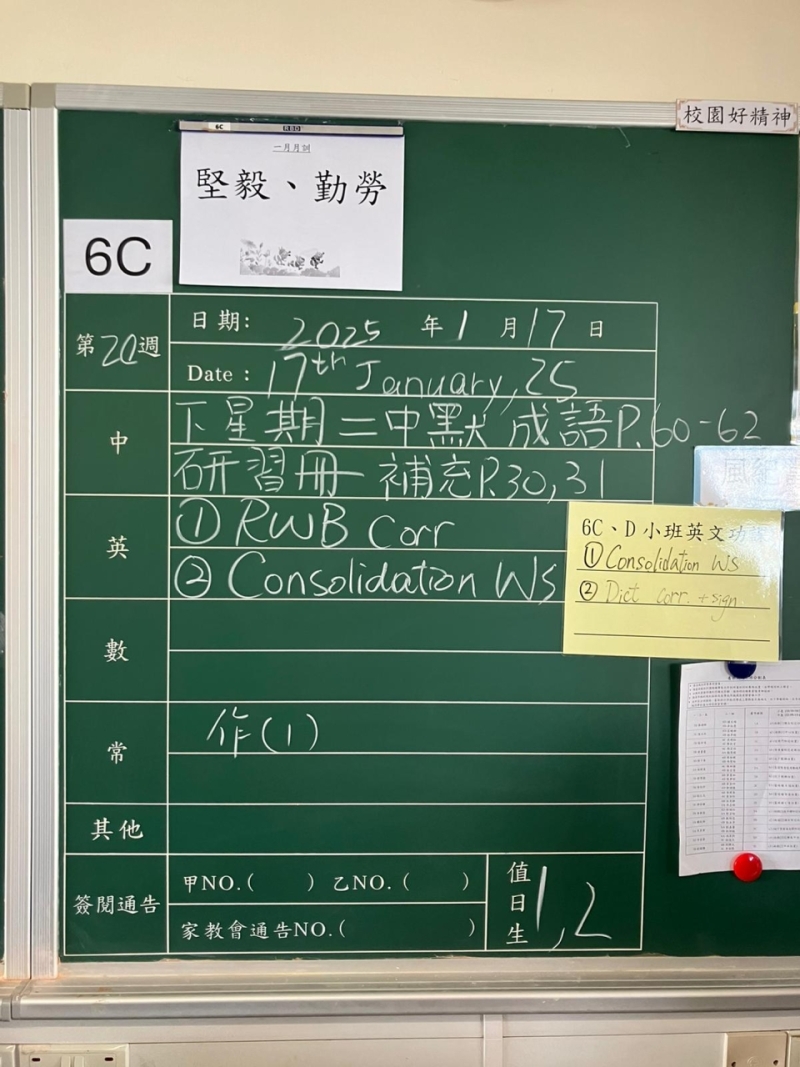 校園好精神
6C
RBD
一月月訓
堅毅、勤勞
6C
第20週
日期: 2025 年 1 月 17 日
Date : 17th January, 25
中
下星期二中默 成語P.60-62
研習冊 補充P.30,31
風紀
英
① RWB Corr
② Consolidation WS
6C、D 小班英文功
① Consolidation WS
② Dict corr. + sign.
數
常
作(1)
其他
簽閱通告
甲NO.( ) 乙NO.( )
家教會通告NO.( )
值日生
1,2